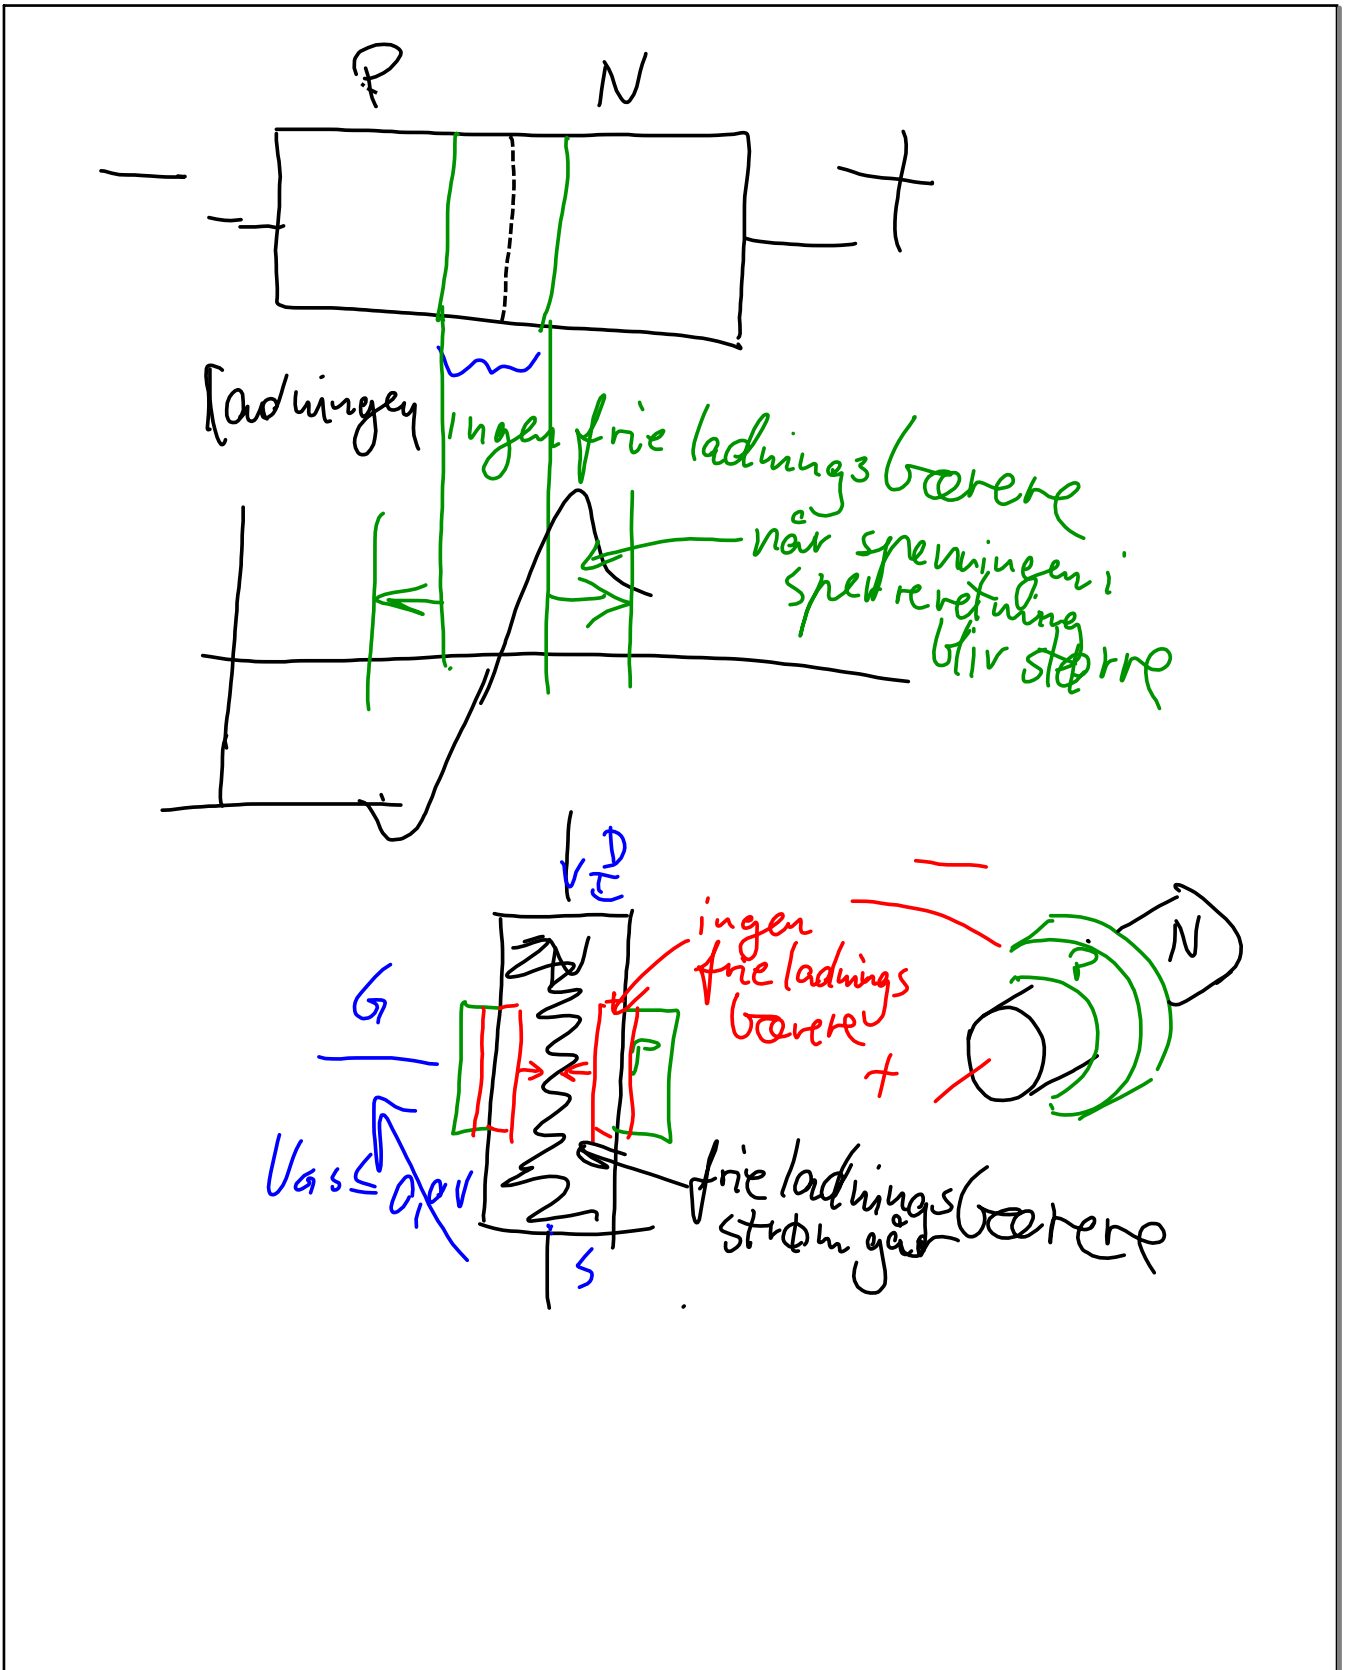 P N
− +
ladningen
ingen frie ladningsbærere
når spenningen i
sperreretning
bliv større
D
I
−
ingen
frie ladnings
bærere
N
P
G
P
+
UGS ≤ 0,0V
frie ladningsbærere
strøm går
S